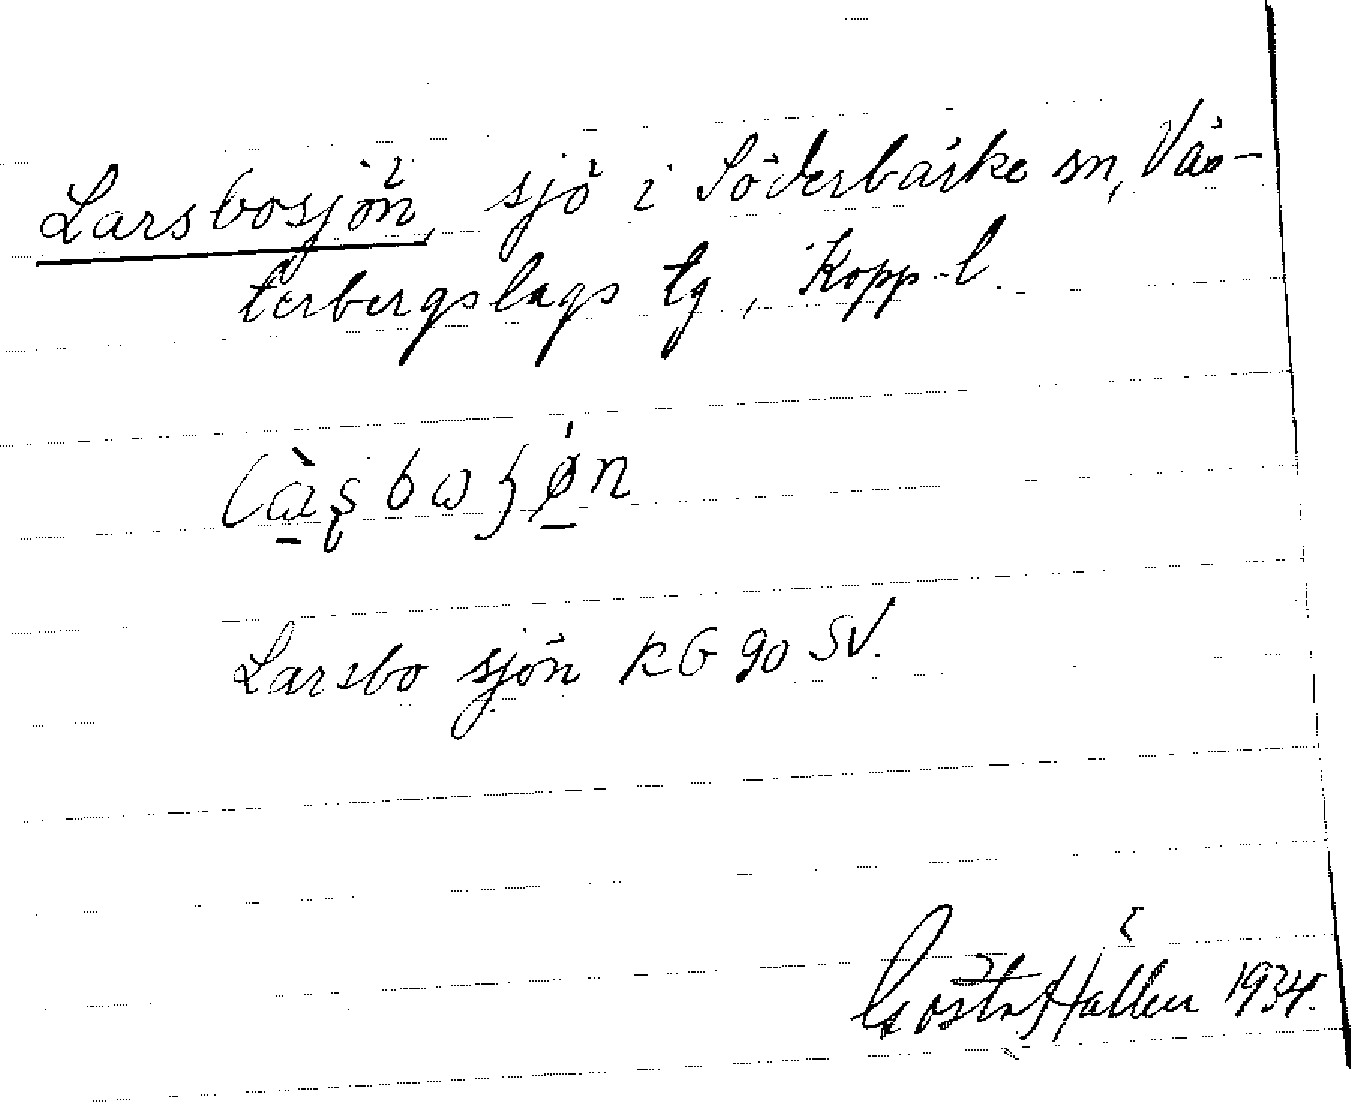 Larsbosjön, sjö i Söderbärke sn, Väs-
terbergslags tg, Kopp. l.
Larsbo sjön KG 90 SV.
Gösta Hallén 1934.